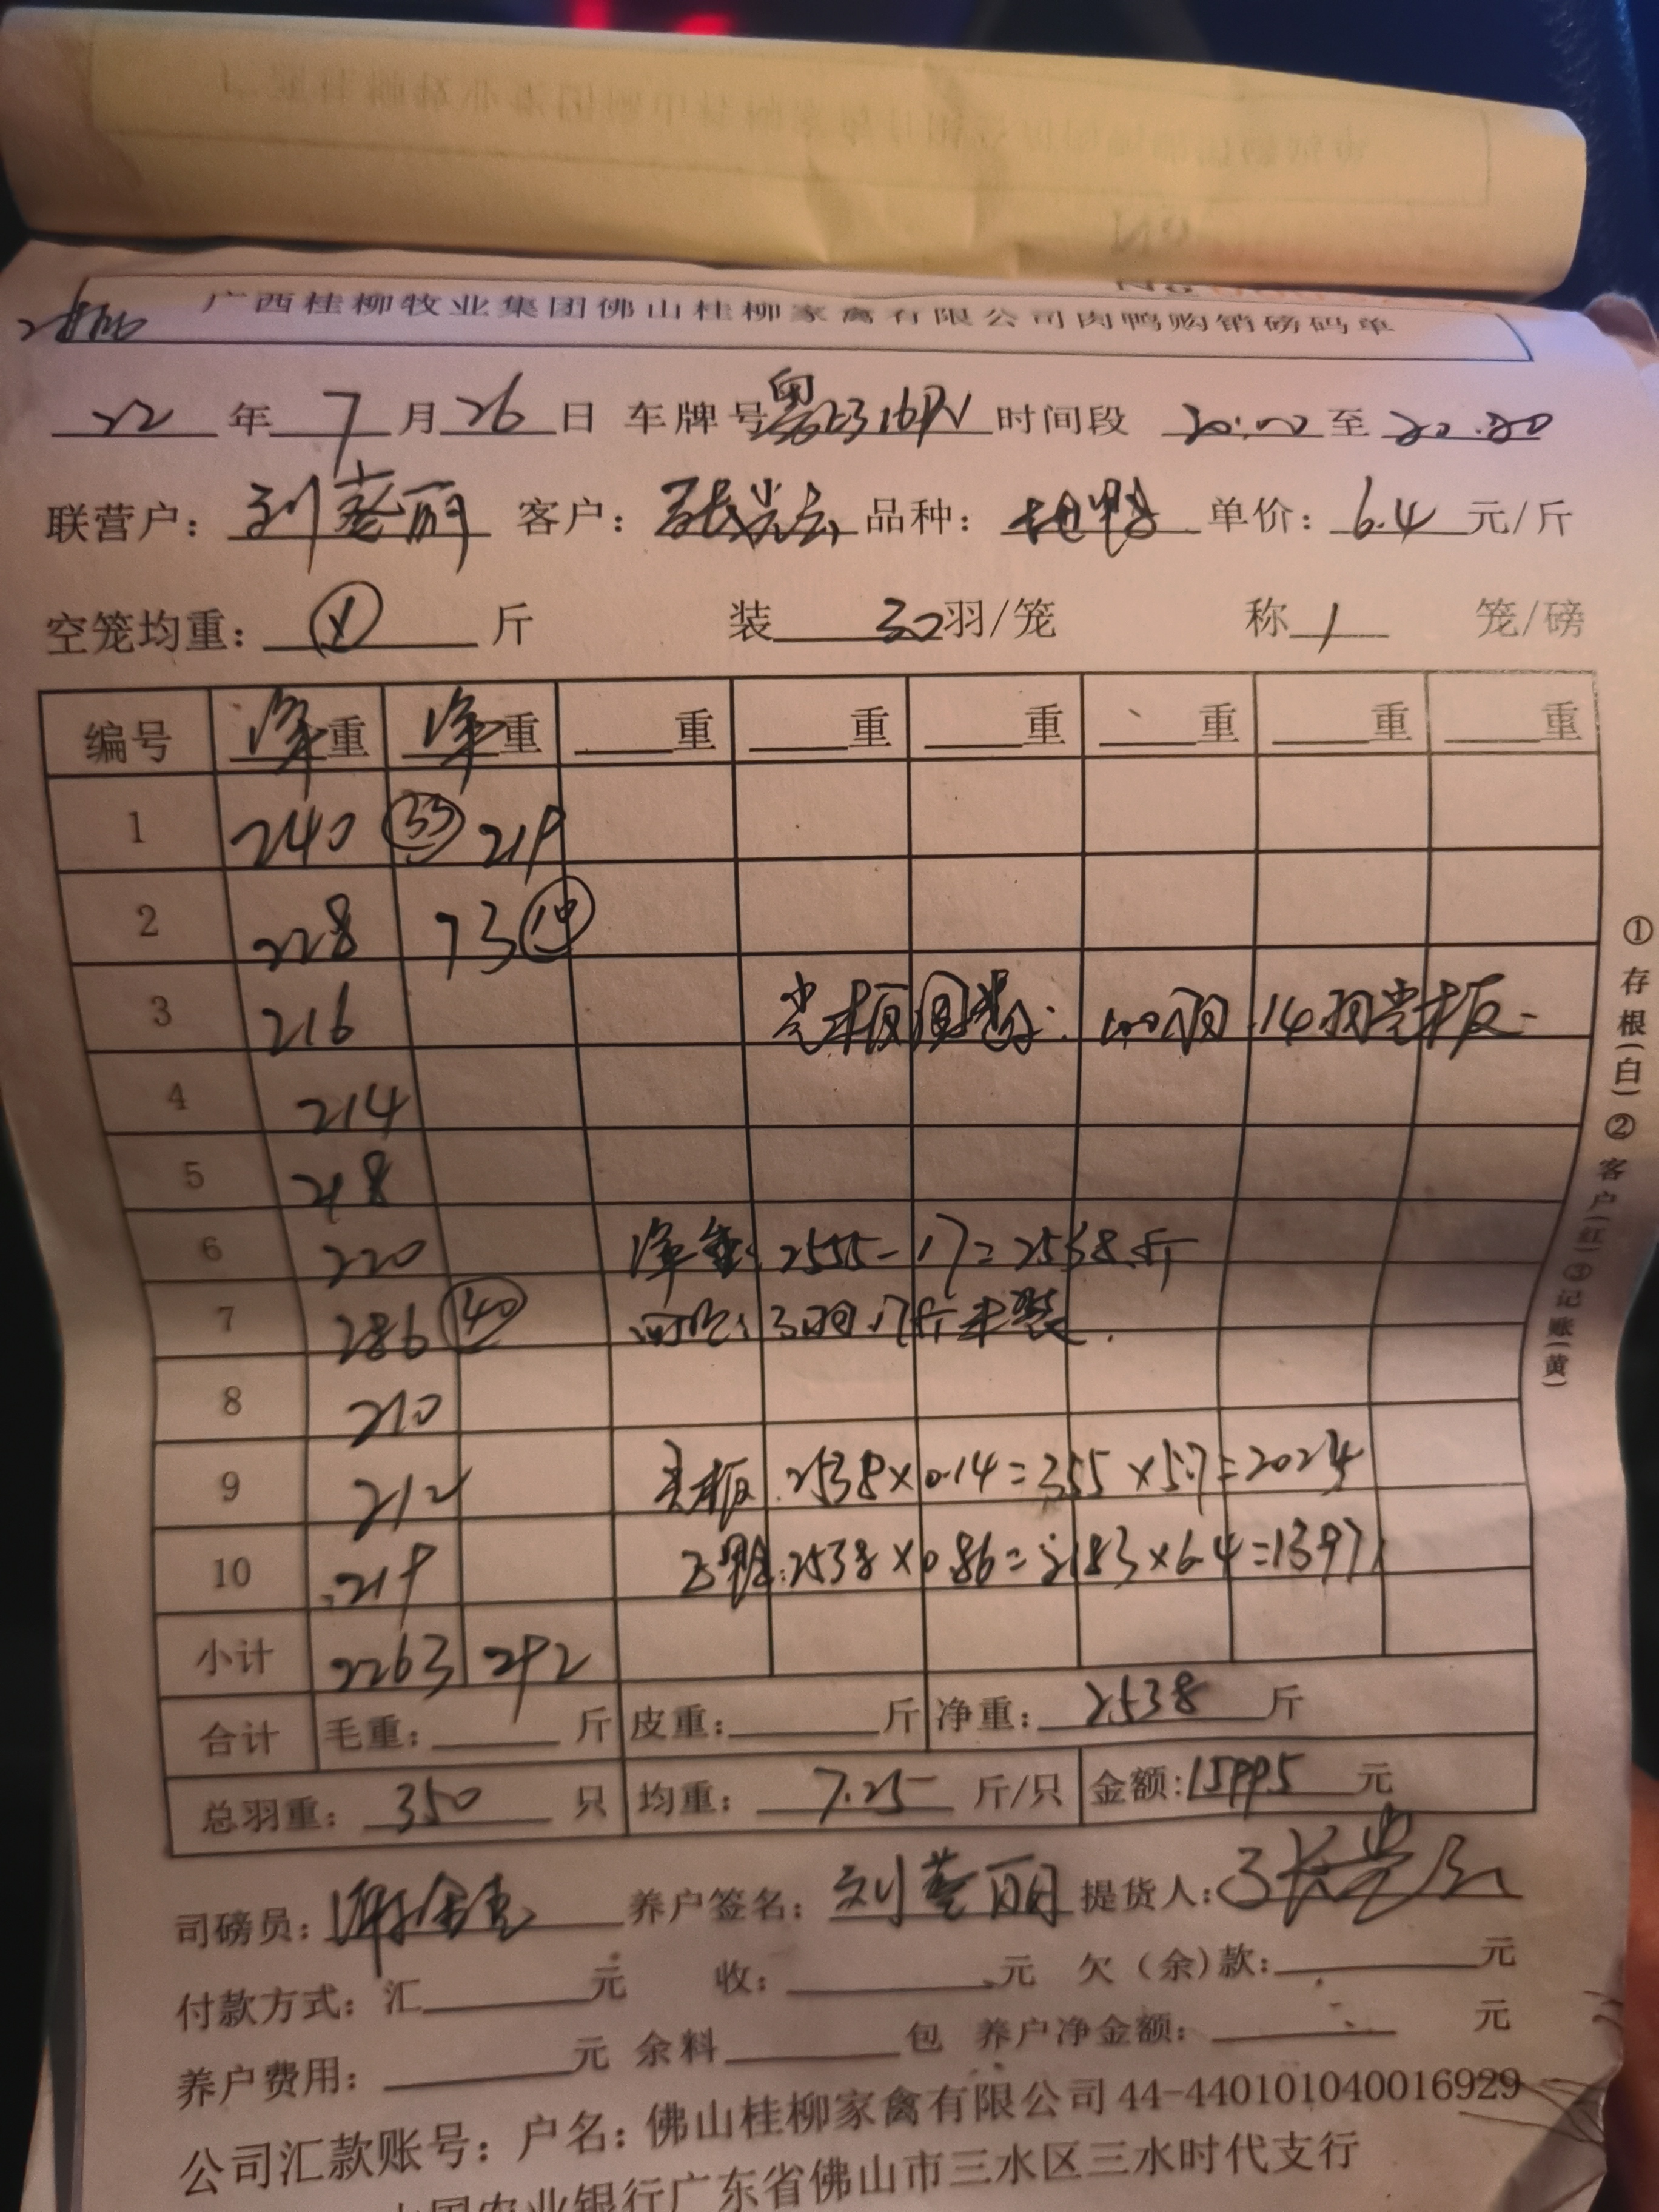 广西桂柳牧业集团佛山桂柳家禽有限公司肉鸭购销磅码单
22 年 7 月 26 日 车牌号 时间段 20:00 至 20:20
联营户: 刘 丽 客户: 张 品种: 单价: 6.4 元/斤
空笼均重: 斤 装 30 羽/笼 称 1 笼/磅
编号 净重 净重 重 重 重 重 重 重
1 240 219
2 228 73
3 216 光板 100羽 14羽光板
4 214
5 218
6 220 净重: 2555-17=2538斤
7 286 40 3羽 17斤未装
8 210
9 212 光板 2538×0.14=355×5.7=2024
10 219 2538×0.86=2183×6.4=13971
小计 2263 292
合计 毛重: 斤 皮重: 斤 净重: 2538 斤
总羽重: 350 只 均重: 7.25 斤/只 金额: 15995 元
司磅员: 养户签名: 刘 丽 提货人: 张
付款方式: 汇 元 收: 元 欠(余)款: 元
养户费用: 元 余料 包 养户净金额: 元
公司汇款账号: 户名: 佛山桂柳家禽有限公司 44-440101040016929
中国农业银行广东省佛山市三水区三水时代支行
①存根(白)②客户(红)③记账(黄)